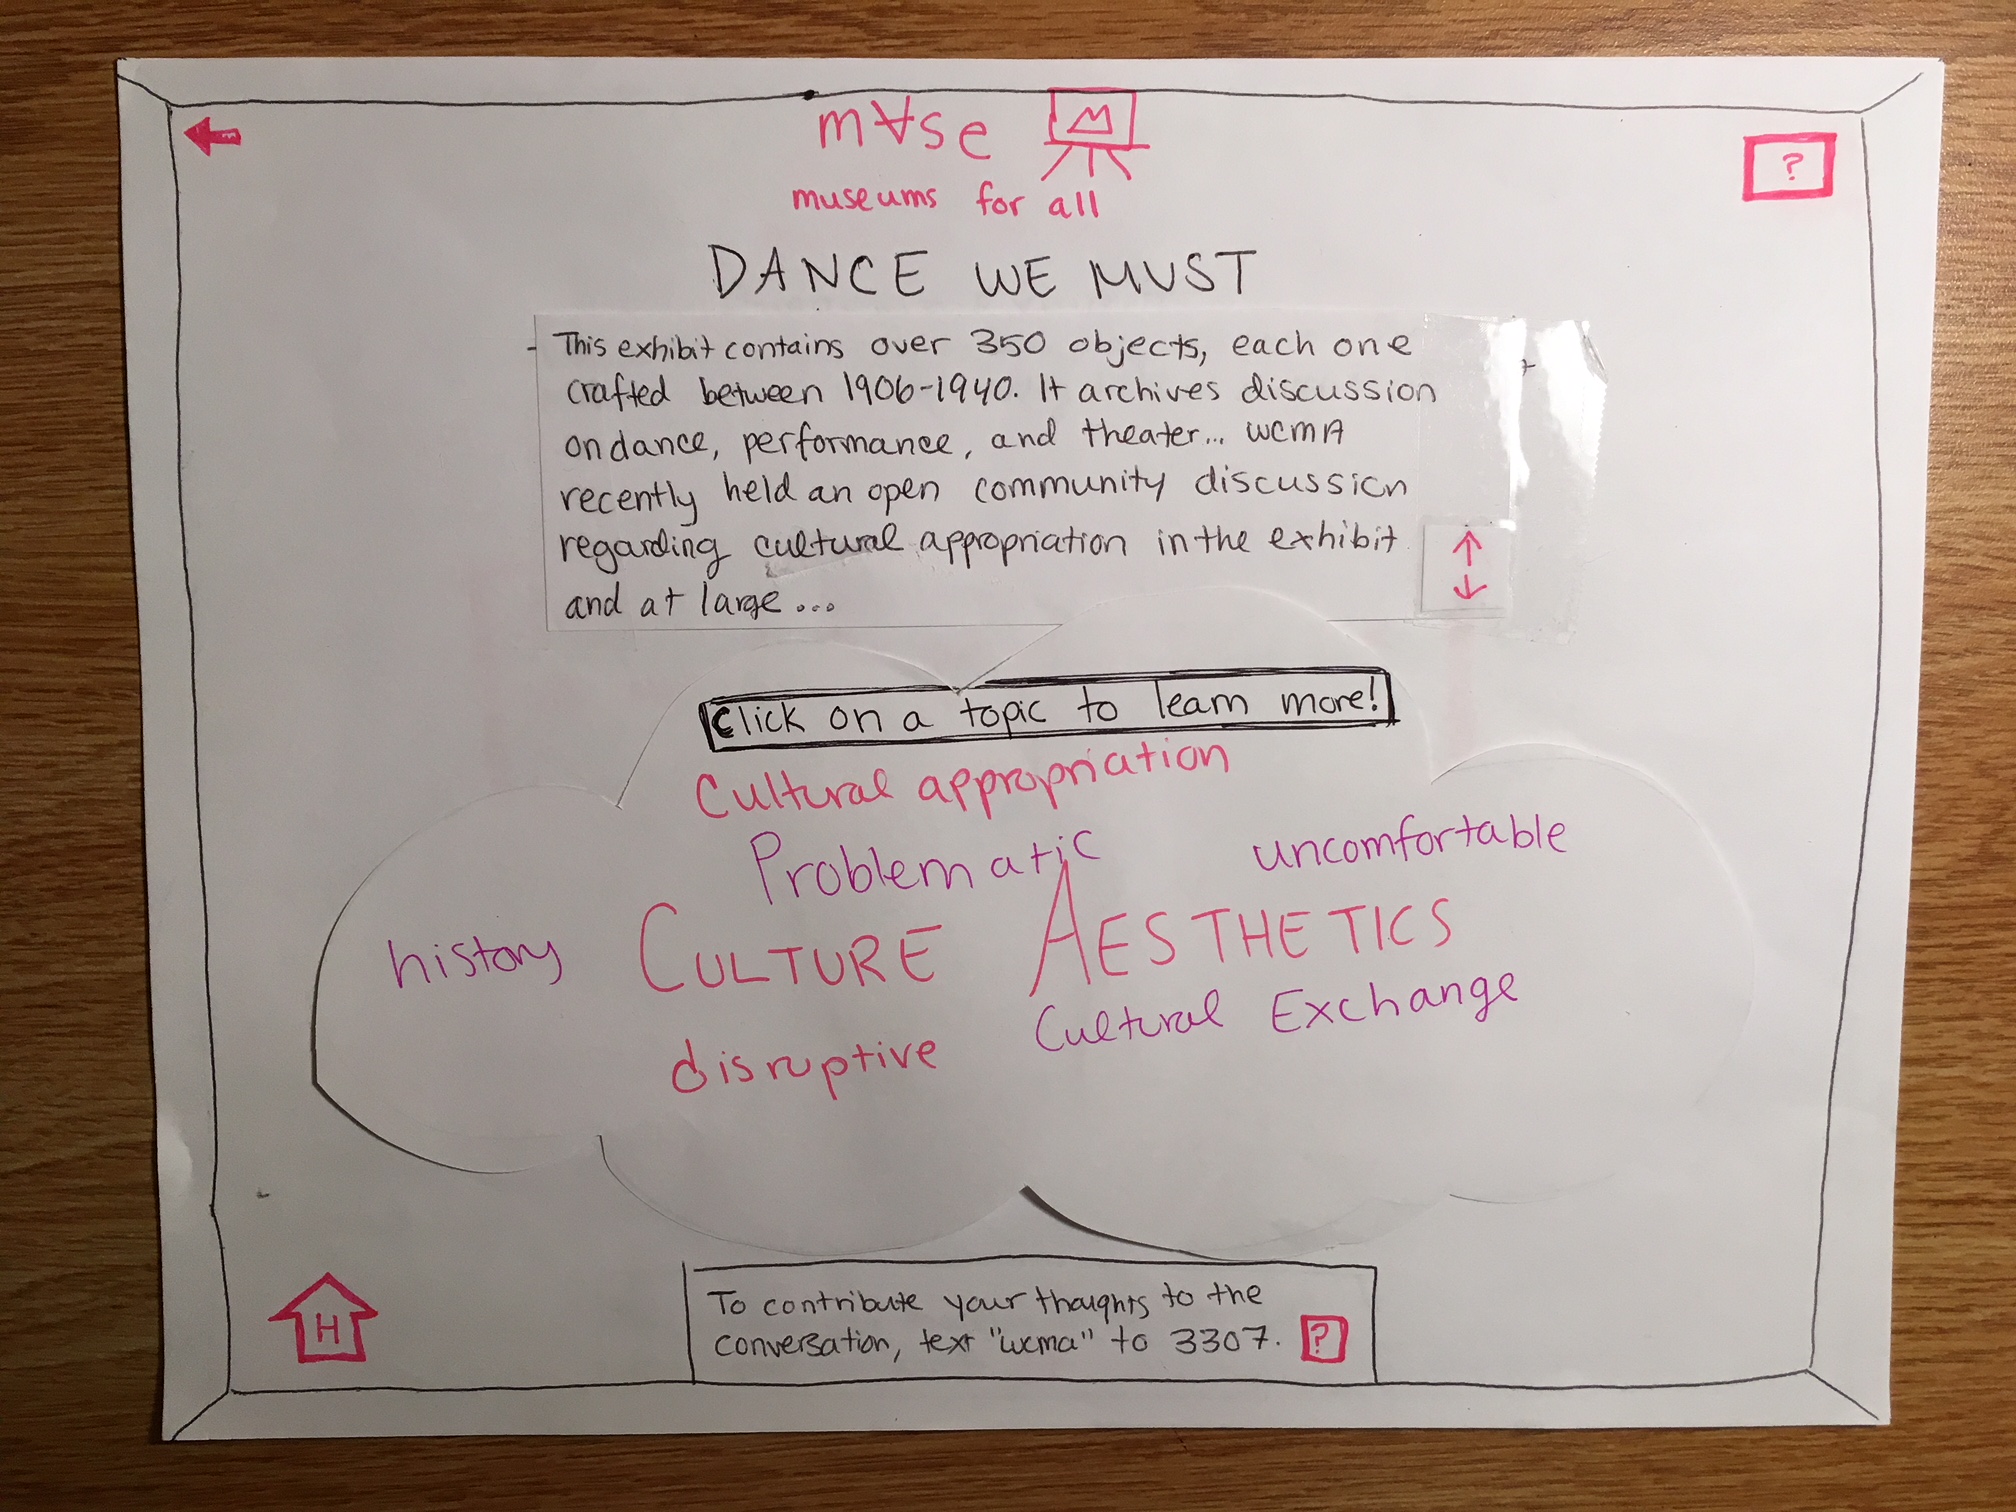 m∀se
M
museums for all
?
DANCE WE MUST
This exhibit contains over 350 objects, each one
crafted between 1906-1940. It archives discussion
on dance, performance, and theater... WCMA
recently held an open community discussion
regarding cultural appropriation in the exhibit
and at large...
Click on a topic to learn more!
Cultural appropriation
Problematic
uncomfortable
history
CULTURE
AESTHETICS
Cultural Exchange
disruptive
H
To contribute your thoughts to the
conversation, text "wcma" to 3307. ?